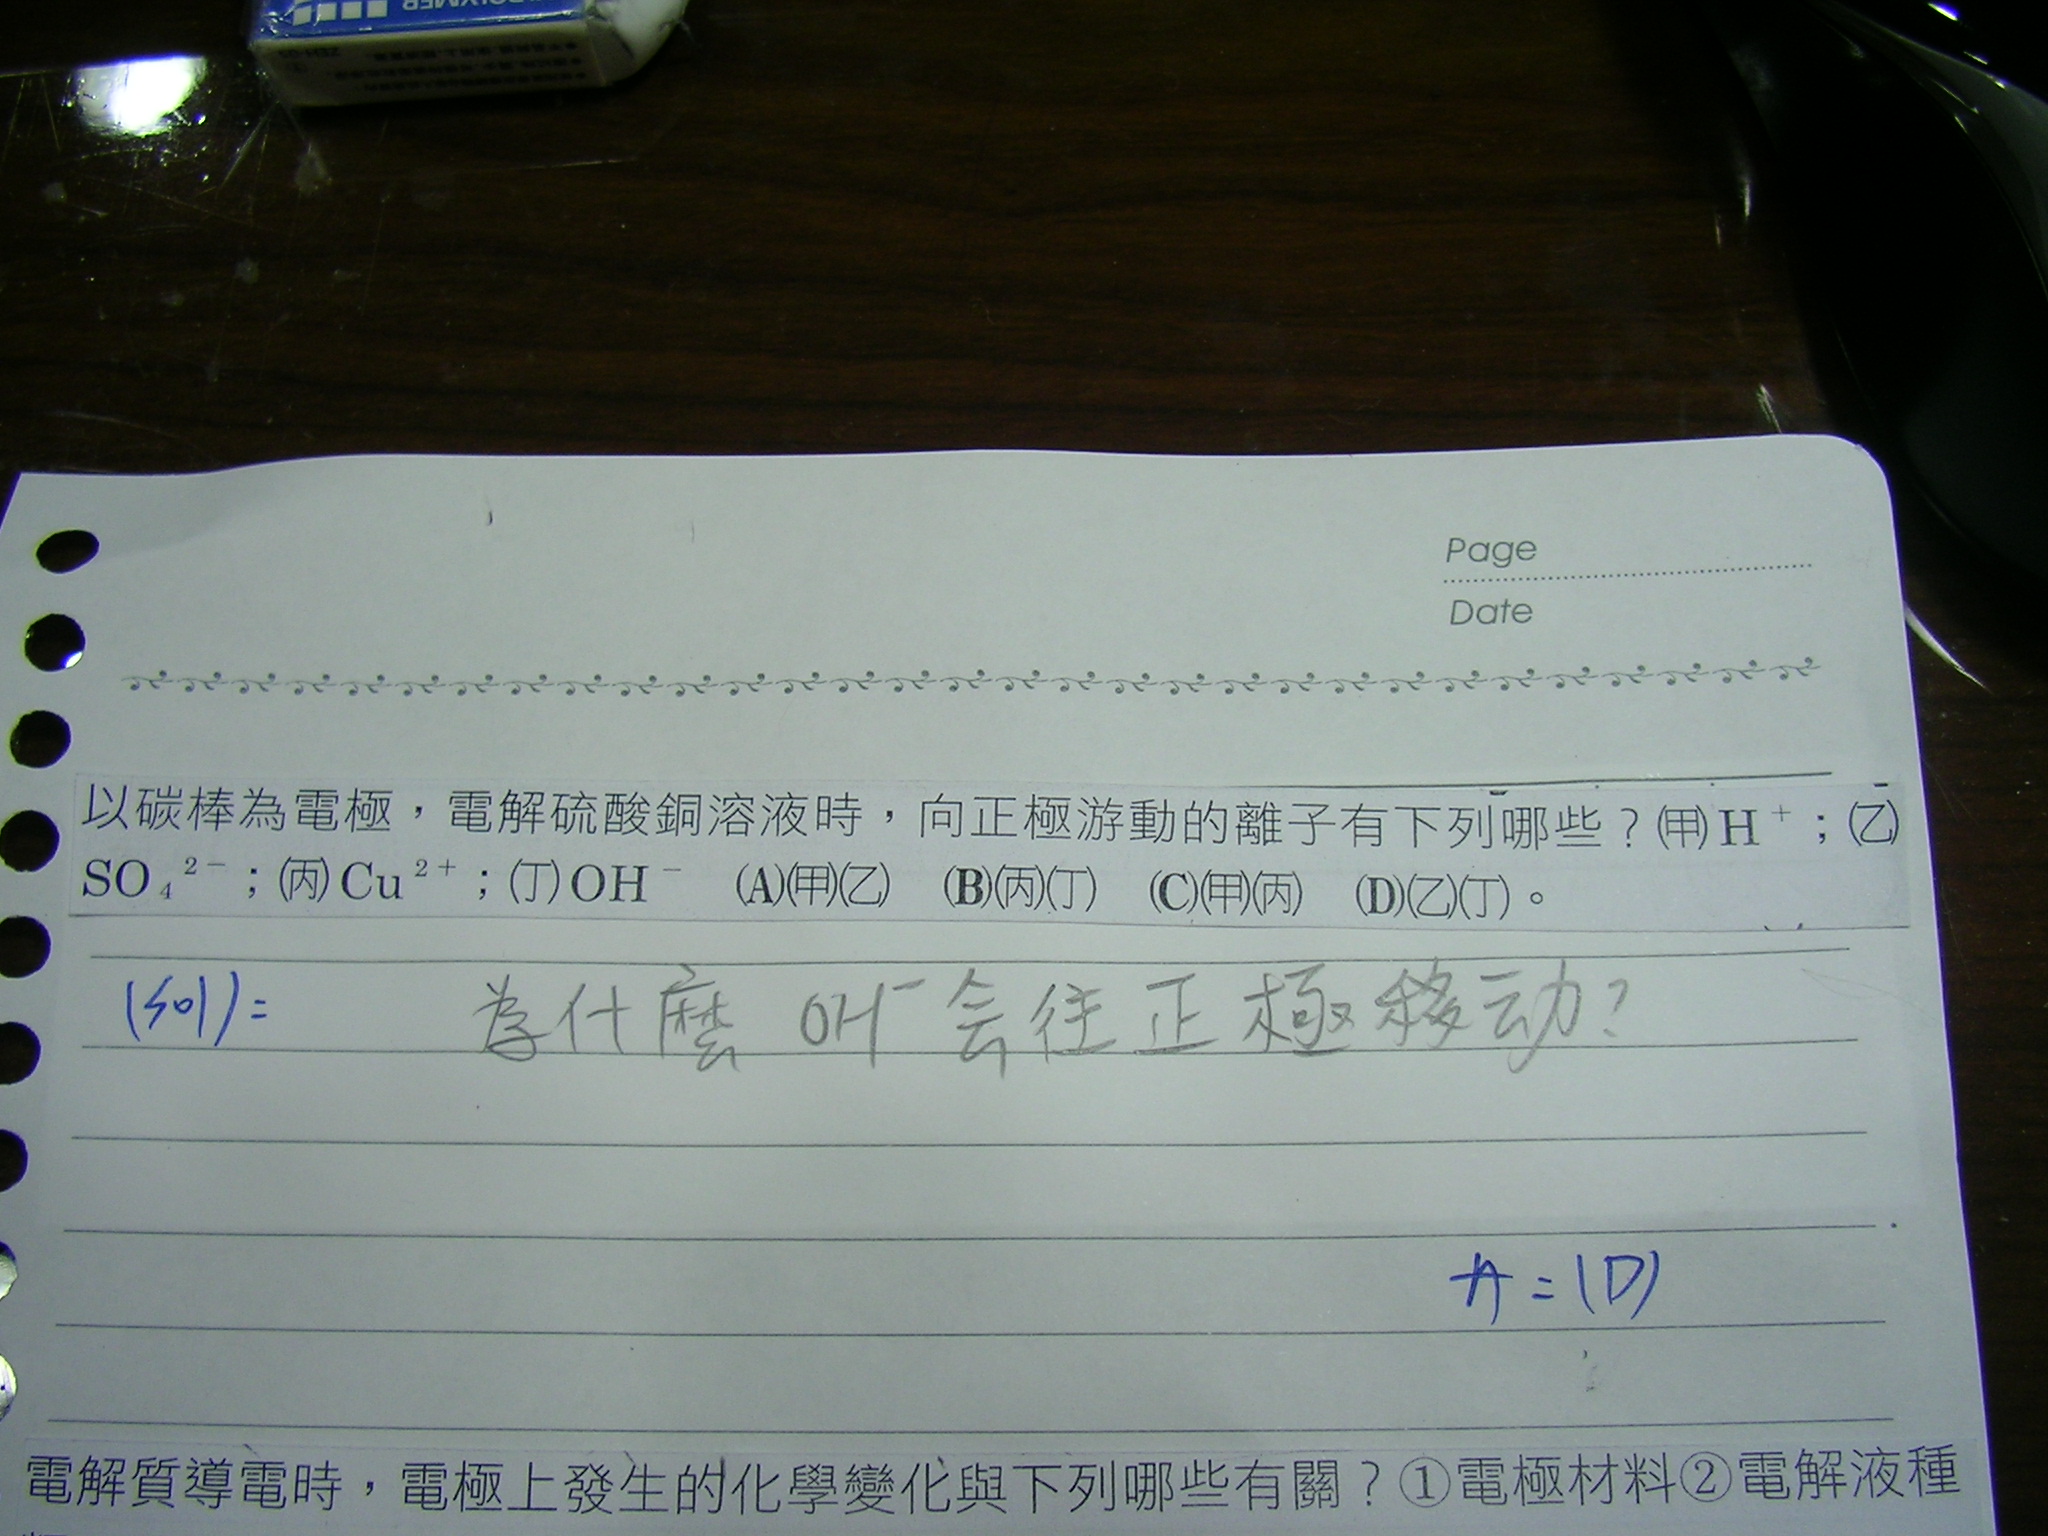 POLYMER
Page
Date
以碳棒為電極，電解硫酸銅溶液時，向正極游動的離子有下列哪些？㈙H⁺；㈚
SO₄²⁻；㈛Cu²⁺；㈜OH⁻ (A)(甲)(乙) (B)(丙)(丁) (C)(甲)(丙) (D)(乙)(丁)。
(sol)= 為什麼 OH⁻会往正極移动?
A=(D)
電解質導電時，電極上發生的化學變化與下列哪些有關？①電極材料②電解液種